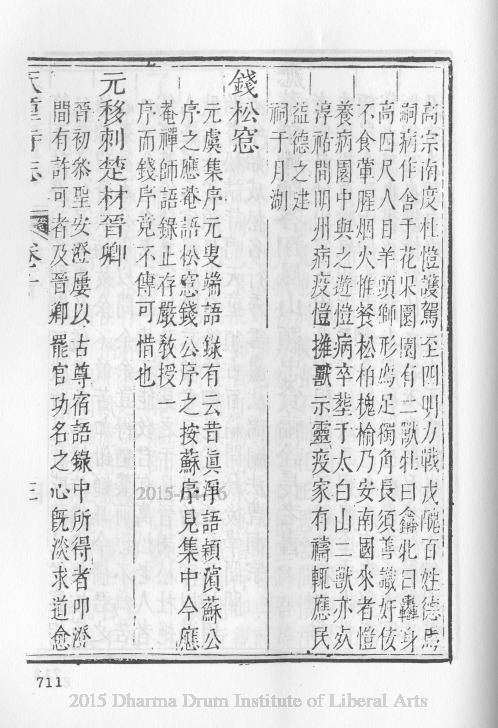 高宗南度杜愷護駕至四明力戰戎醜百姓德焉
嗣病作舍于花果園園有二獸牡曰 牝曰 身
高四尺八目羊頭獅形鷹足獨角長須善識奸佞
不食葷腥烟火惟餐松柏槐榆乃安南國來者愷
養病園中與之遊愷病卒塟于太白山二獸亦 
淳祐間明州病疫愷擁獸示靈疫家有禱輒應民
益德之建
祠于月湖
錢松窓
元虞集序元叟端語錄有云昔眞淨語潁濱蘇公
序之應菴語松窓錢公序之按蘇序見集中今應
菴禪師語錄止存嚴敎授
序而錢序竟不傳可惜也
元移剌楚材晉卿
晉初叅聖安澄屢以古尊宿語錄中所得者叩澄
間有許可者及晉卿罷官功名之心旣淡求道愈
天童寺志 卷十 三
2015-
711
2015 Dharma Drum Institute of Liberal Arts